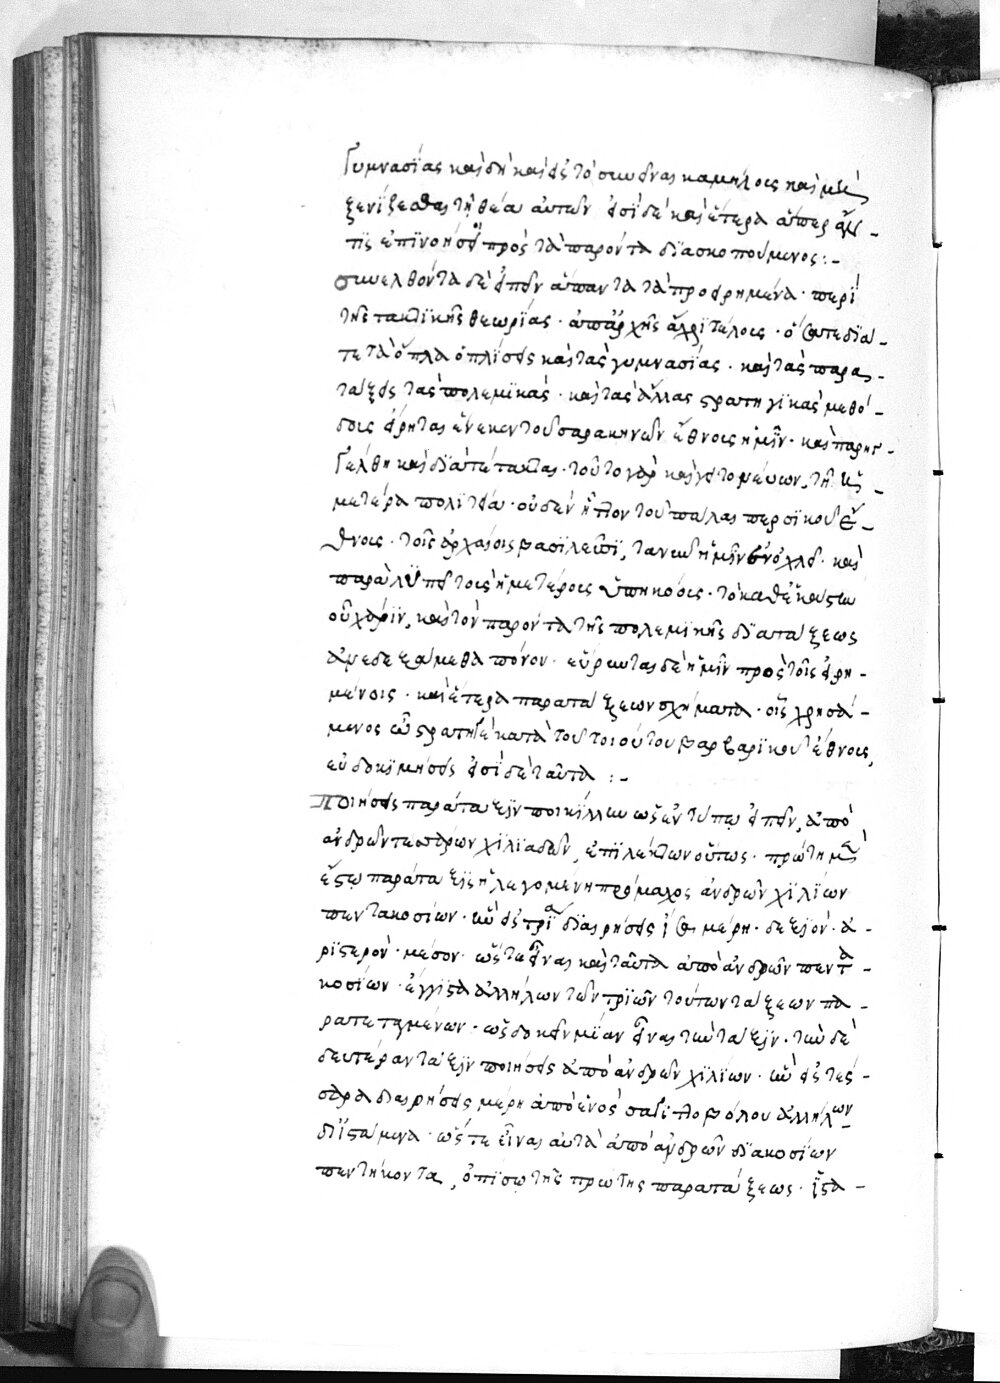 γυμνασίας καὶ δὴ καὶ εἰς τὸ συνεῖναι καμήλοις καὶ μὴ
ξενίζεσθαι τῇ θέᾳ αὐτῶν εἰσὶ δὲ καὶ ἕτερα ἅπερ ἄν
τις ἐπινοήσοι πρὸς τὰ παρόντα διασκοπούμενος :-
συνελθόντα δὲ εἰπεῖν ἅπαντα τὰ προειρημένα · περὶ
τῆς τακτικῆς θεωρίας · ἀπ' ἀρχῆς ἄχρι τέλους ·
τε τὰ ὅπλα ὁπλίσεις καὶ τὰς γυμνασίας · καὶ τὰς παρα-
τάξεις τὰς πολεμικάς · καὶ τὰς ἄλλας στρατηγικὰς μεθό-
δους εἴρηται ἕνεκεν τοῦ σαρακηνῶν ἔθνους ἡμῖν · καὶ παρηγ-
γέλθη καὶ διατέτακται · τοῦτο γὰρ καὶ γειτονεύων τῇ ἡ-
μετέρᾳ πολιτείᾳ · οὐδὲν ἧττον τοῦ πάλαι περσικοῦ ἔ-
θνους · τοῖς ἀρχαίοις βασιλεῦσι, τανῦν ἡμῖν ἐνοχλεῖ · καὶ
παραλυπεῖ τοῖς ἡμετέροις ὑπηκόοις · τὸ καθ' ἑκάστην
οὗ χάριν, καὶ τὸν παρόντα τῆς πολεμικῆς διατάξεως
ἀνεδεξάμεθα πόνον · εὕρωνται δὲ ἡμῖν πρὸς τοῖς εἰρη-
μένοις · καὶ ἕτερα παρατάξεων σχήματα · οἷς χρησά-
μενος ὦ στρατηγὲ κατὰ τοῦ τοιούτου βαρβαρικοῦ ἔθνους,
εὐδοκιμήσεις εἰσὶ δὲ ταῦτα :-
ποιήσεις παράταξιν ποικίλλην ὡς ἐν τύπῳ εἰπεῖν, ἀπὸ
ἀνδρῶν τεσσάρων χιλιάδων, ἐπιλέκτων οὕτως · πρώτη μὲν
ἔστω παράταξις ἡ λεγομένη πρόμαχος ἀνδρῶν χιλίων
πεντακοσίων · ἣν εἰς τρία διαιρήσεις μέρη · δεξιὸν · ἀ-
ριστερὸν · μέσον · ὥστε εἶναι καὶ ταῦτα ἀπὸ ἀνδρῶν πεντα-
κοσίων · ἔγγιστα ἀλλήλων τῶν τριῶν τούτων τάξεων πα-
ρατεταγμένων · ὡς δοκεῖν μίαν εἶναι τὴν τάξιν · τὴν δὲ
δευτέραν τάξιν ποιήσεις ἀπὸ ἀνδρῶν χιλίων · ἣν εἰς τέσ-
σαρα διαιρήσεις μέρη ἀπὸ ἑνὸς σαγιττοβόλου ἀλλήλων
διϊστάμενα · ὥστε εἶναι αὐτὰ ἀπὸ ἀνδρῶν διακοσίων
πεντήκοντα, ὀπίσω τῆς πρώτης παρατάξεως · ἱστα-